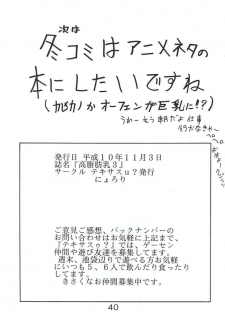 次は
冬コミはアニメネタの
本にしたいですね
(カカか オーフェンが巨乳に!?)
うわーもう朝だよ 仕事
行かなきゃ〜
発行日 平成10年11月3日
誌名『高脂肪乳3』
サークル テキサスu?発行
にょろり
ご意見ご感想、バックナンバーの
お問い合わせはお気軽に上記まで、
『テキサスu?』では、ゲーセン
仲間や遊び友達を募集してます。
週末、池袋辺りで遊べる方お気軽
にいつも5、6人で飲んだり食ったり
してます。
きさくなお仲間募集中です。
40